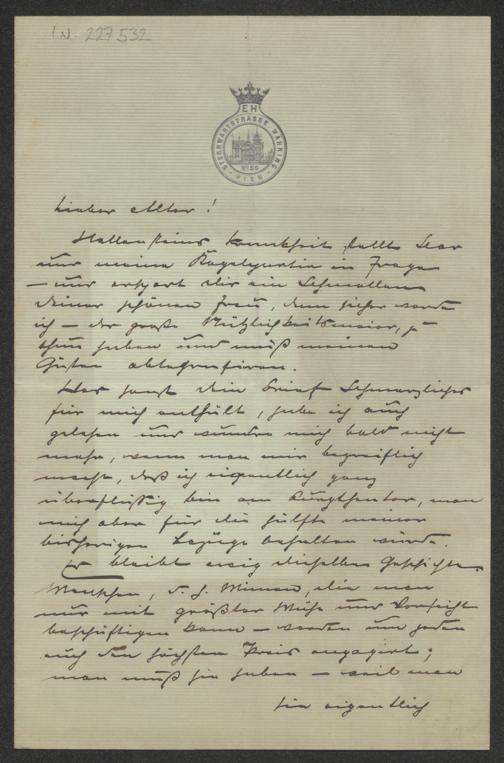 I.N. 227532
EH
STERNWARTSTRASSE WÄHRING
No 55
WIEN
Lieber Alter!
Hallensteins Krankheit stellt
nur meine in Frage
— und erspart Dir ein Schmollen
Deiner schönen Frau, denn sicher werde
ich — der große
Gästen
Was sonst dein Brief Schmerzliches
für mich enthält, habe ich auch
gelesen und wundre mich bald nicht
mehr, wenn man mir begreiflich
macht, daß ich eigentlich ganz
überflüssig bin am Burgtheater, man
mich aber für die Hälfte meiner
bisherigen Bezüge behalten würde.
Es bleibt ewig dieselbe Geschichte.
Menschen, d. h. Mimen, die man
nur mit größter Mühe und Vorsicht
beschäftigen kann — werden um jeden
auch den höchsten Preis engagirt;
man muß sie haben — weil man
sie eigentlich